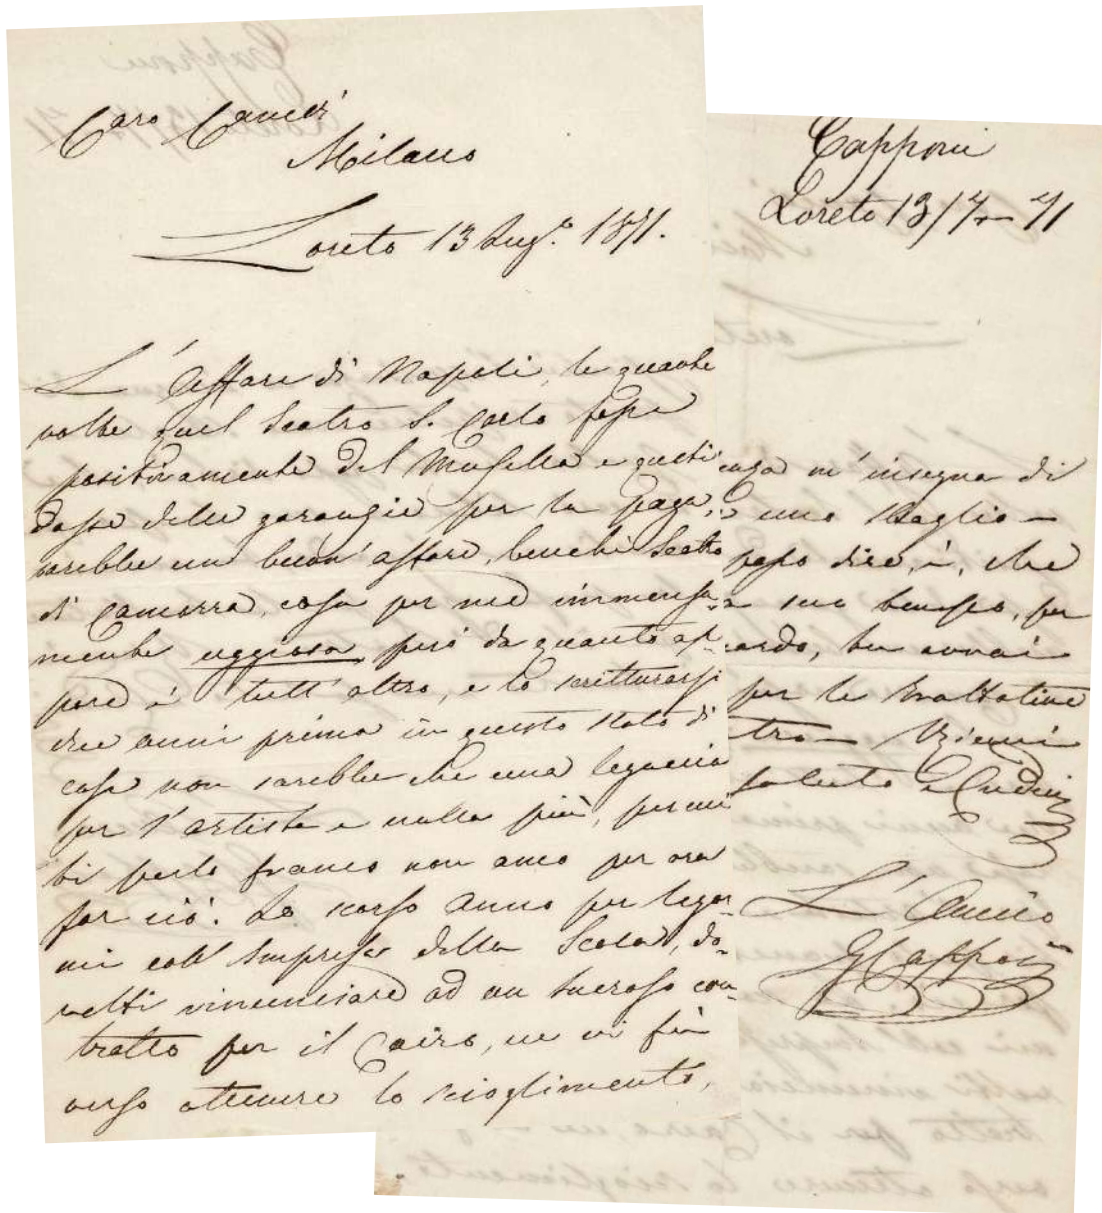 Caro Canedi
Milano
Loreto 13 Lug.º 1871.
L'Affare di Napoli, le quante
volte quel Teatro S. Carlo fosse
positivamente del Musella e questi
dasse delle garanzie per la paga,
sarebbe un buon'affare, benchè Teatro
di camorra, cosa per me immensa-
mente uggiosa però da quanto ap-
pare è tutt'altro, e lo scritturarsi
due anni prima in questo stato di
cose non sarebbe che una legaccia
per l'artista e nulla più, per cui
ti parlo franco non amo per ora
far ciò. Lo scorso Anno per legar-
mi coll'Impresa della Scala, do-
vetti rinunciare ad un lucroso con-
tratto per il Cairo, ne vi fu
verso ottenere lo scioglimento,
Capponi
Loreto 13/7 - 71
m'insegna di
uno sbaglio -
posso dire, è, che
suo benespo, per
tu avrai
per le trattative
Ricevi
saluto e Credimi
L'Amico
GCapponi